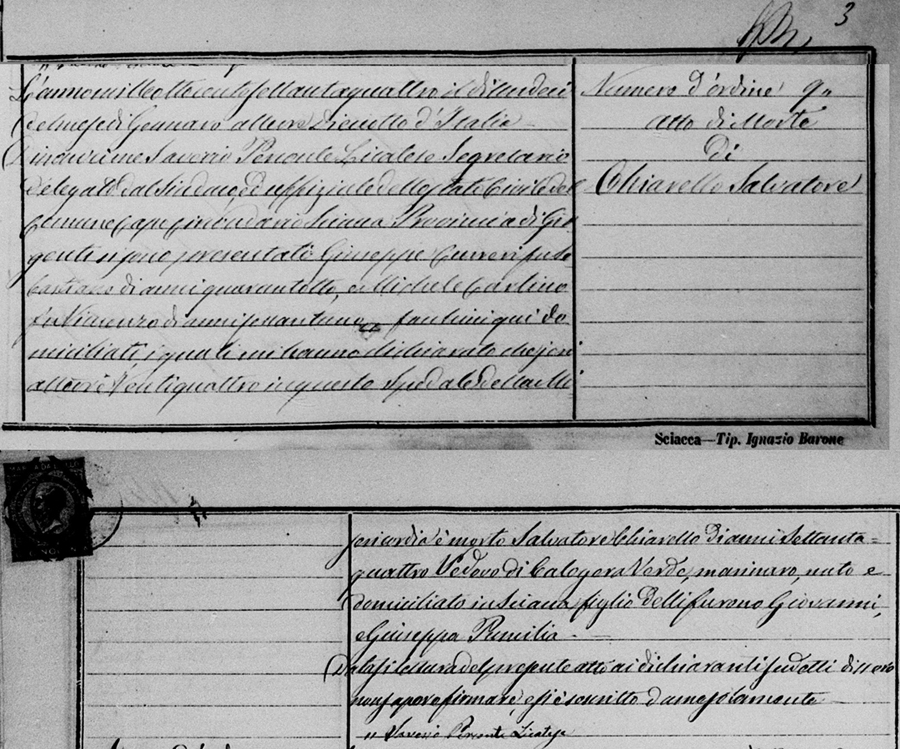 3
L'anno mille ottocento settantaquattro il dì tredeci
del mese di Gennaro alle ore diciotto d'Italia
Innanzi me Saverio Perrone Licatese Segretario
delegato dal Sindaco ed uffiziale dello Stato Civile del
Comune Capo Circondario Sciacca Provincia di Gir
genti si sono presentati Giuseppe Curreri fu Se
bastiano di anni quarantotto, e Michele Carlino
fu Vincenzo di anni facchini qui do
miciliati i quali mi hanno dichiarato che jeri
alle ore Ventiquattro in questo Spedale della Mi
Numero d'ordine 9
atto di Morte
Di
Chiarello Salvatore
Sciacca—Tip. Ignazio Barone
sericordia è morto Salvatore Chiarello di anni Settanta=
quattro Vedovo di Calogera Verde, marinaro, nato e
domiciliato in Sciacca figlio delli furono Giovanni,
e Giuseppa
Datasi lettura del presente atto ai dichiaranti sudetti dissero
non sapere firmare, e si è soscritto da me solamente
" Saverio Perrone Licatese